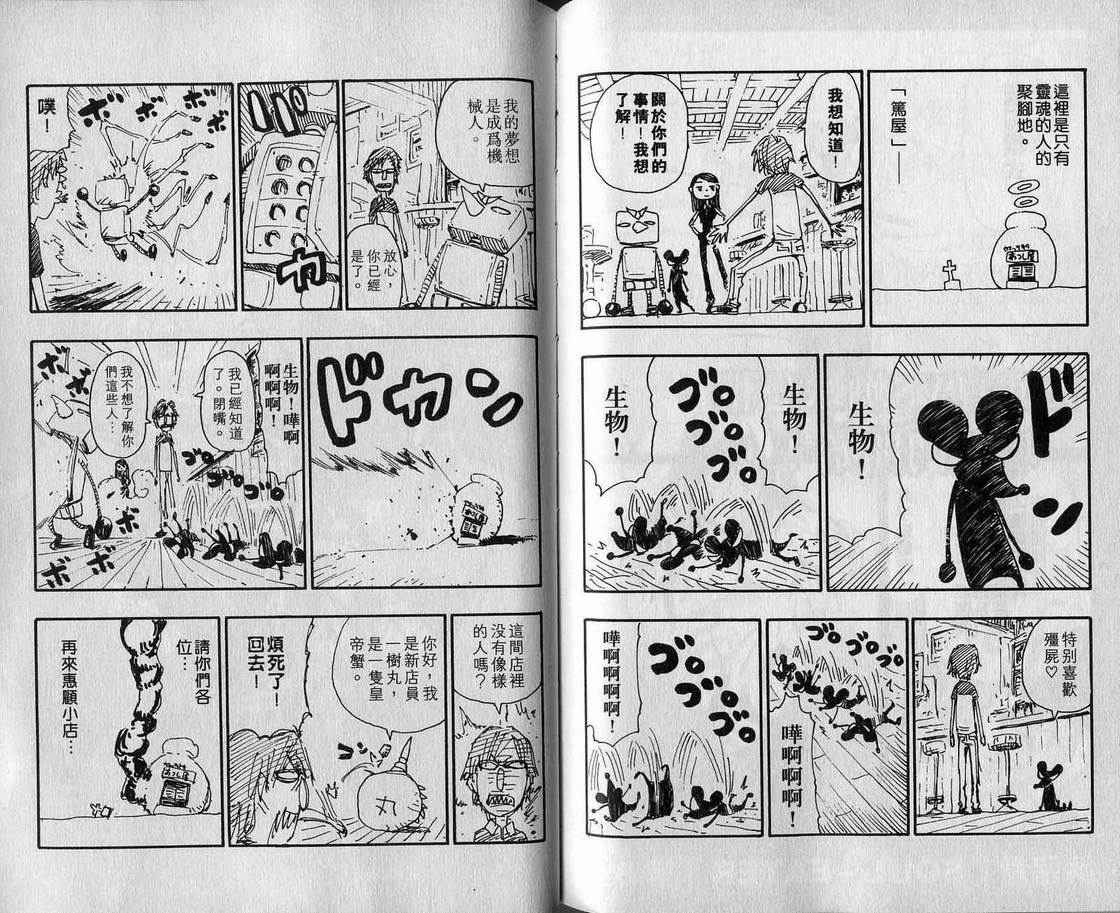 這裡是只有
靈魂的人的
聚腳地。
「篤屋」——
我想知道！
關於你們的
事情！我想
了解！
ドン
生物！
生物！
ゴ。ゴ。ゴ。
生物！
特別喜歡
殭屍♡
ゴ。ゴ。ゴ。
嘩啊啊啊！
ゴ。ゴ。ゴ。
嘩啊啊啊啊！
我的夢想
是成爲機
械人。
放心，
你已經
是了。
パカ
ボボボボ
噗！
ドカン
生物！嘩啊
啊啊啊！
我已經知道
了。閉嘴。
我不想了解你
們這些人…
ゴ。ゴ。ゴ。ゴ。
ボボ
ボ
ボボ
這間店裡
沒有像樣
的人嗎？
你好，我
是新店員
一樹丸，
是一隻皇
帝蟹。
コン
丸
煩死了！
回去！
請你們各
位…
再來惠顧小店…